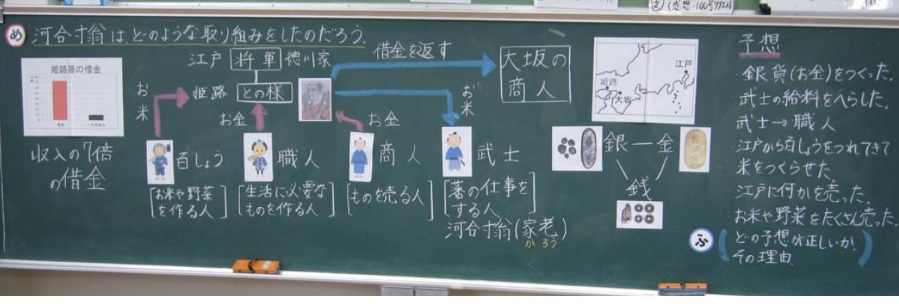 め 河合寸翁は、どのような取り組みをしたのだろう。
姫路藩の借金
収入の7倍
の借金
江戸 将軍 徳川家
姫路 との様
借金を返す
大坂の
商人
お米
お金
お金
お米
百しょう
お米や野菜
を作る人
職人
生活に必要な
ものを作る人
商人
ものを売る人
武士
藩の仕事を
する人
河合寸翁(家老)
かろう
姫路
大坂
江戸
銀ー金
銭
予想
銀貨(お金)をつくった。
武士の給料をへらした。
武士→職人
江戸から百しょうをつれてきて
米をつくらせた
江戸に何かを売った。
お米や野菜をたくさん売った。
ふ どの予想が正しいか
その理由